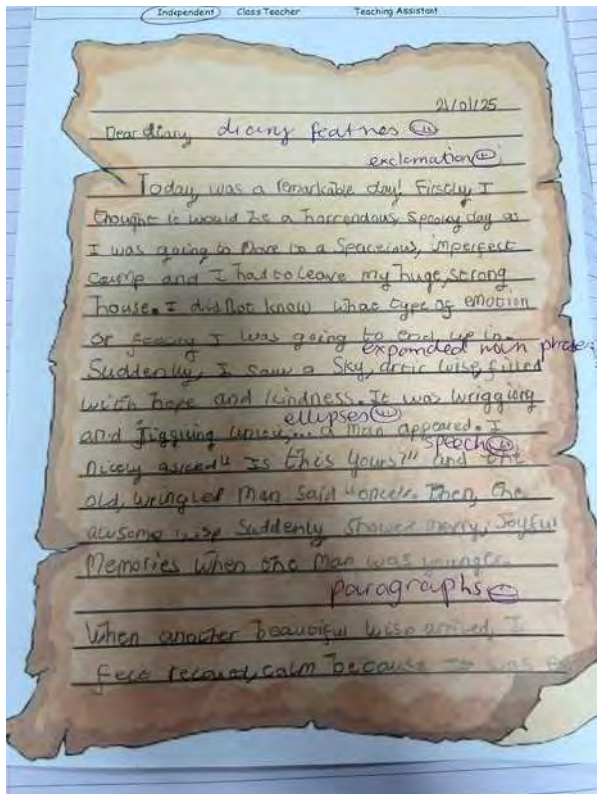 Independent Class Teacher Teaching Assistant
21/01/25
Dear diary, diary featres
exclamation
Today, was a remarkable day! Firstly, I
thought it would be a horrendous, spooky day as
I was going to move to a spacious, imperfect
camp and I had to leave my huge, strong
house. I did not know what type of emotion
or I was going to end up in.
expanded noun phrases
Suddenly, I saw a sky, wisp filled
with hope and kindness. It was wriggiong
ellipses
and until... a man appeared. I
speech
nicely asked "Is this yours?" and the
old, wringled man said Then, the
awsome wisp suddenly showed merry, joyful
memories when the man was younger.
paragraphs
When another beautiful wisp arrived, I
calm because it was